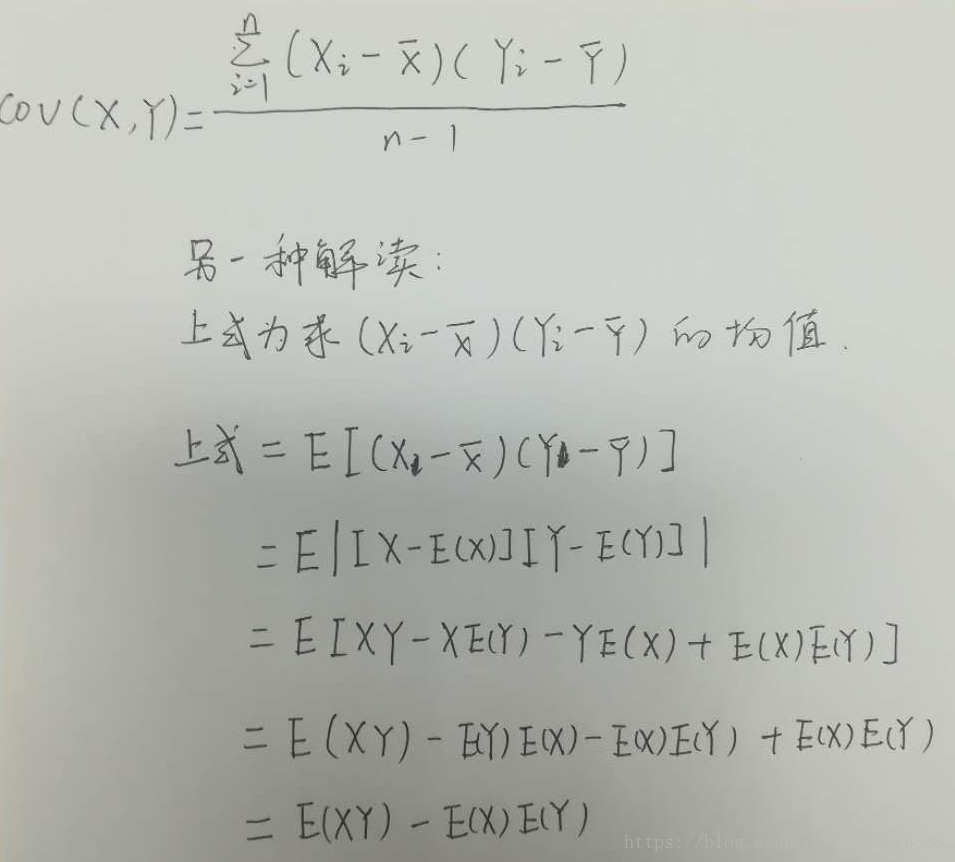 cov(X,Y)= \frac{\sum_{i=1}^{n}(X_i-\bar{X})(Y_i-\bar{Y})}{n-1}
另一种解读:
上式为求(X_i-\bar{X})(Y_i-\bar{Y})的均值.
上式=E[(X-\bar{X})(Y-\bar{Y})]
=E|[X-E(X)][Y-E(Y)]|
=E[XY-XE(Y)-YE(X)+E(X)E(Y)]
=E(XY)-E(Y)E(X)-E(X)E(Y)+E(X)E(Y)
=E(XY)-E(X)E(Y)
https://blog.